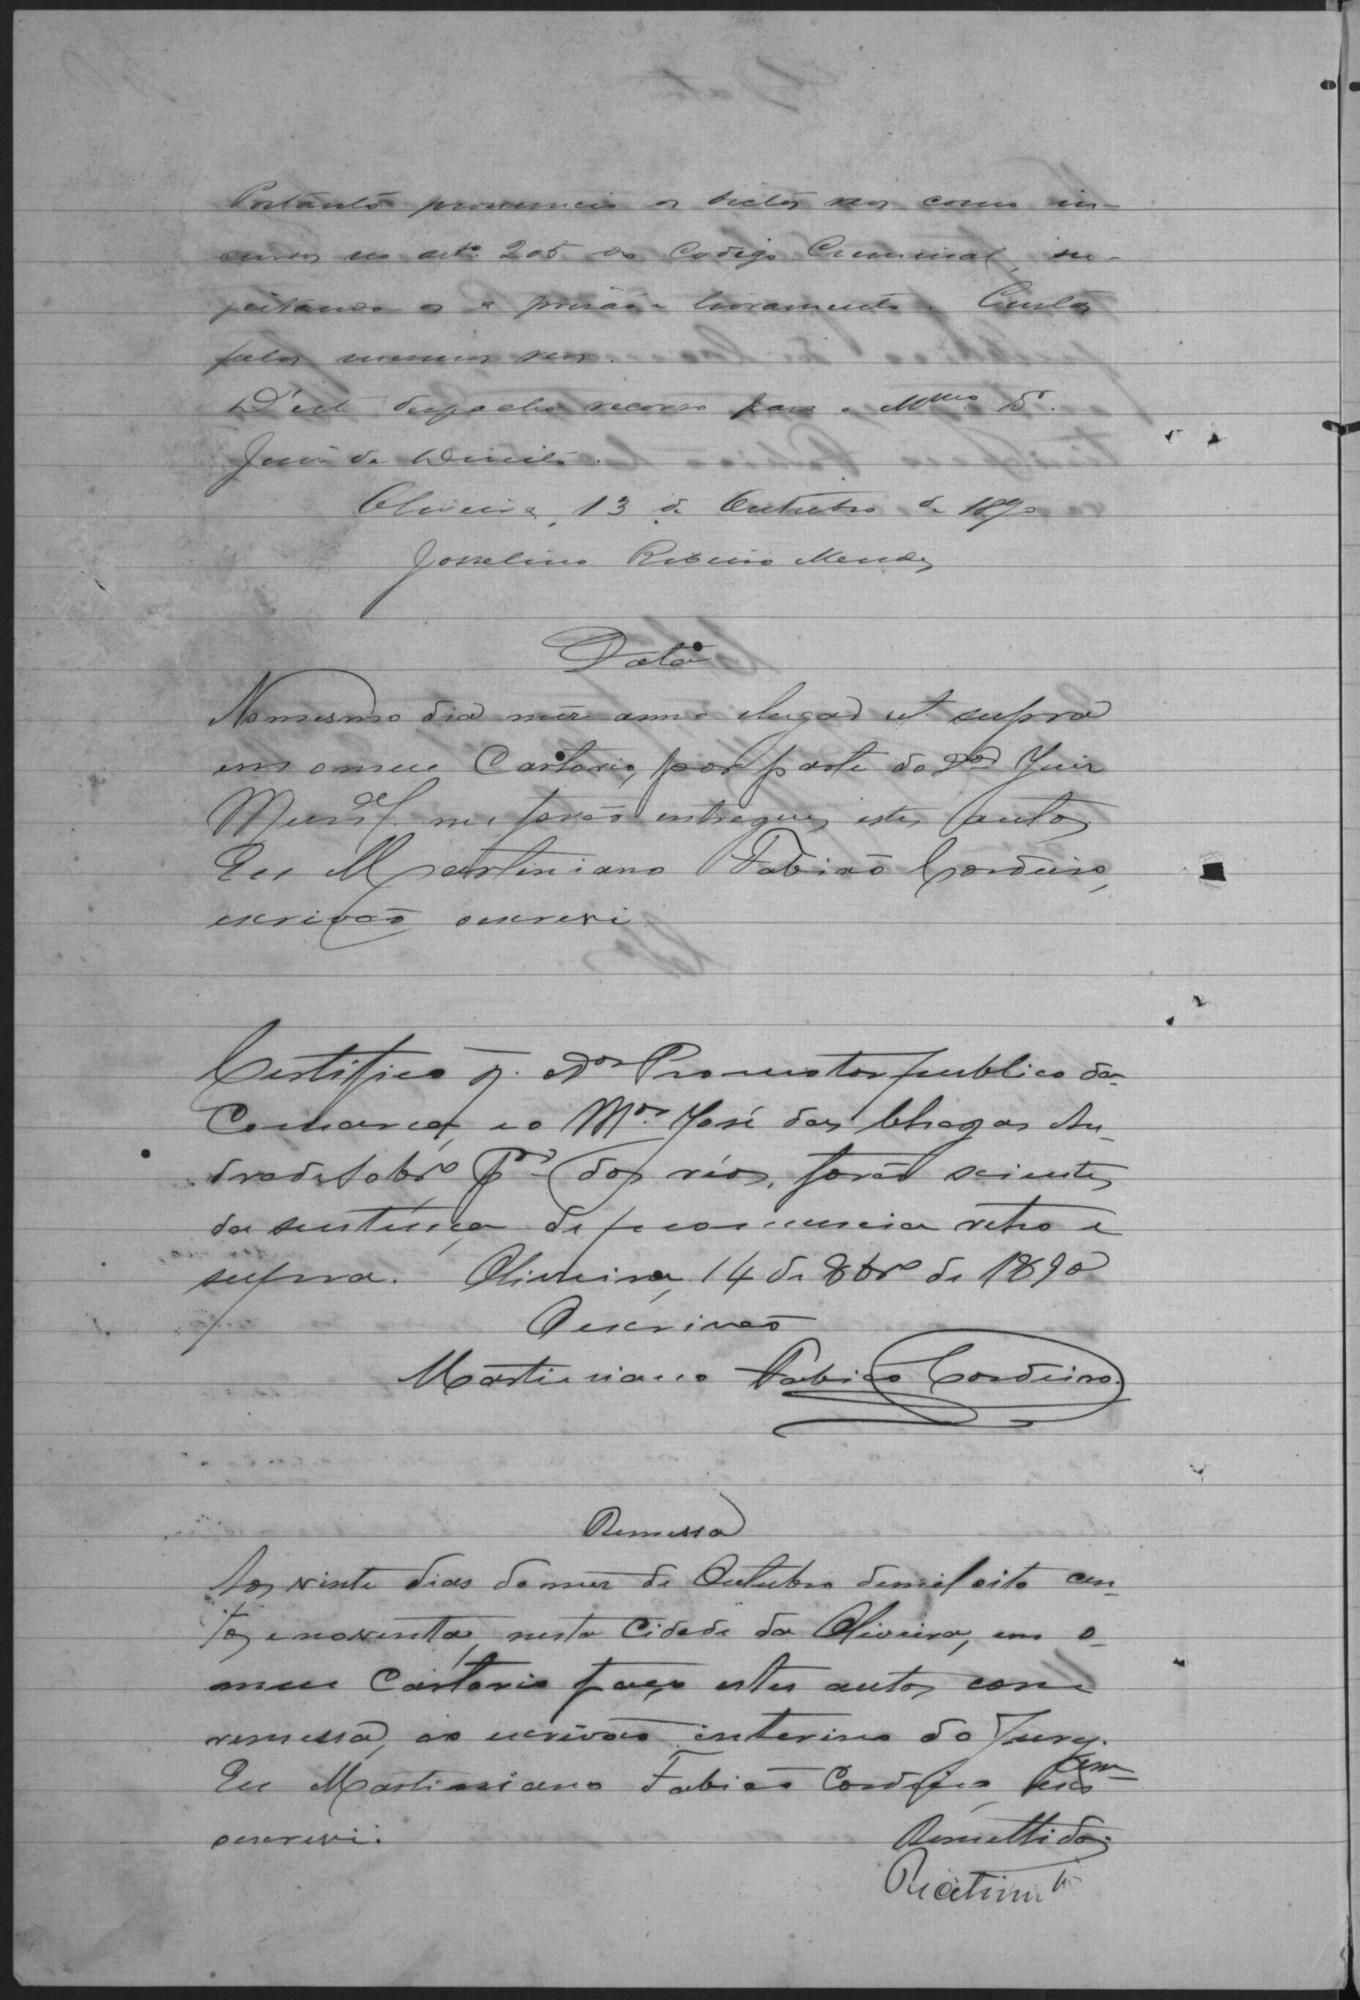 Portanto pronuncio os dictos reos como in-
cursos no artº 205 do Codigo Criminal, su-
jeitando os a prisão e livramento. Custas
pelos mesmos reos.
D'este despacho recorro para o Mmo Dr.
Juiz de Direito.
Oliveira, 13 de Outubro de 1890
Josselino Ribeiro Mendes
Data
No mesmo dia mez anno e lugar ut supra
em o meu Cartorio, por parte do Juiz
Munal. me forão entregues estes autos
Eu Martiniano Fabião Cordeiro,
escrivão o escrevi
Certifico q. o Dor Promotor publico da
Comarca, e o Mor. José das Chagas An-
drade Sobrº dos réos, forão scientes
da sentença de pronuncia retro e
supra. Oliveira, 14 de 8brº de 1890
O escrivão
Martiniano Fabião Cordeiro.
Remessa
Aos vinte dias do mez de Outubro de mil oito cen-
tos e noventa, nesta Cidade da Oliveira, em o
meu Cartorio faço estes autos com
remessa, ao escrivão interino do Jury.
Eu Martiniano Fabião Cordeiro,
o escrevi.
Remettidos